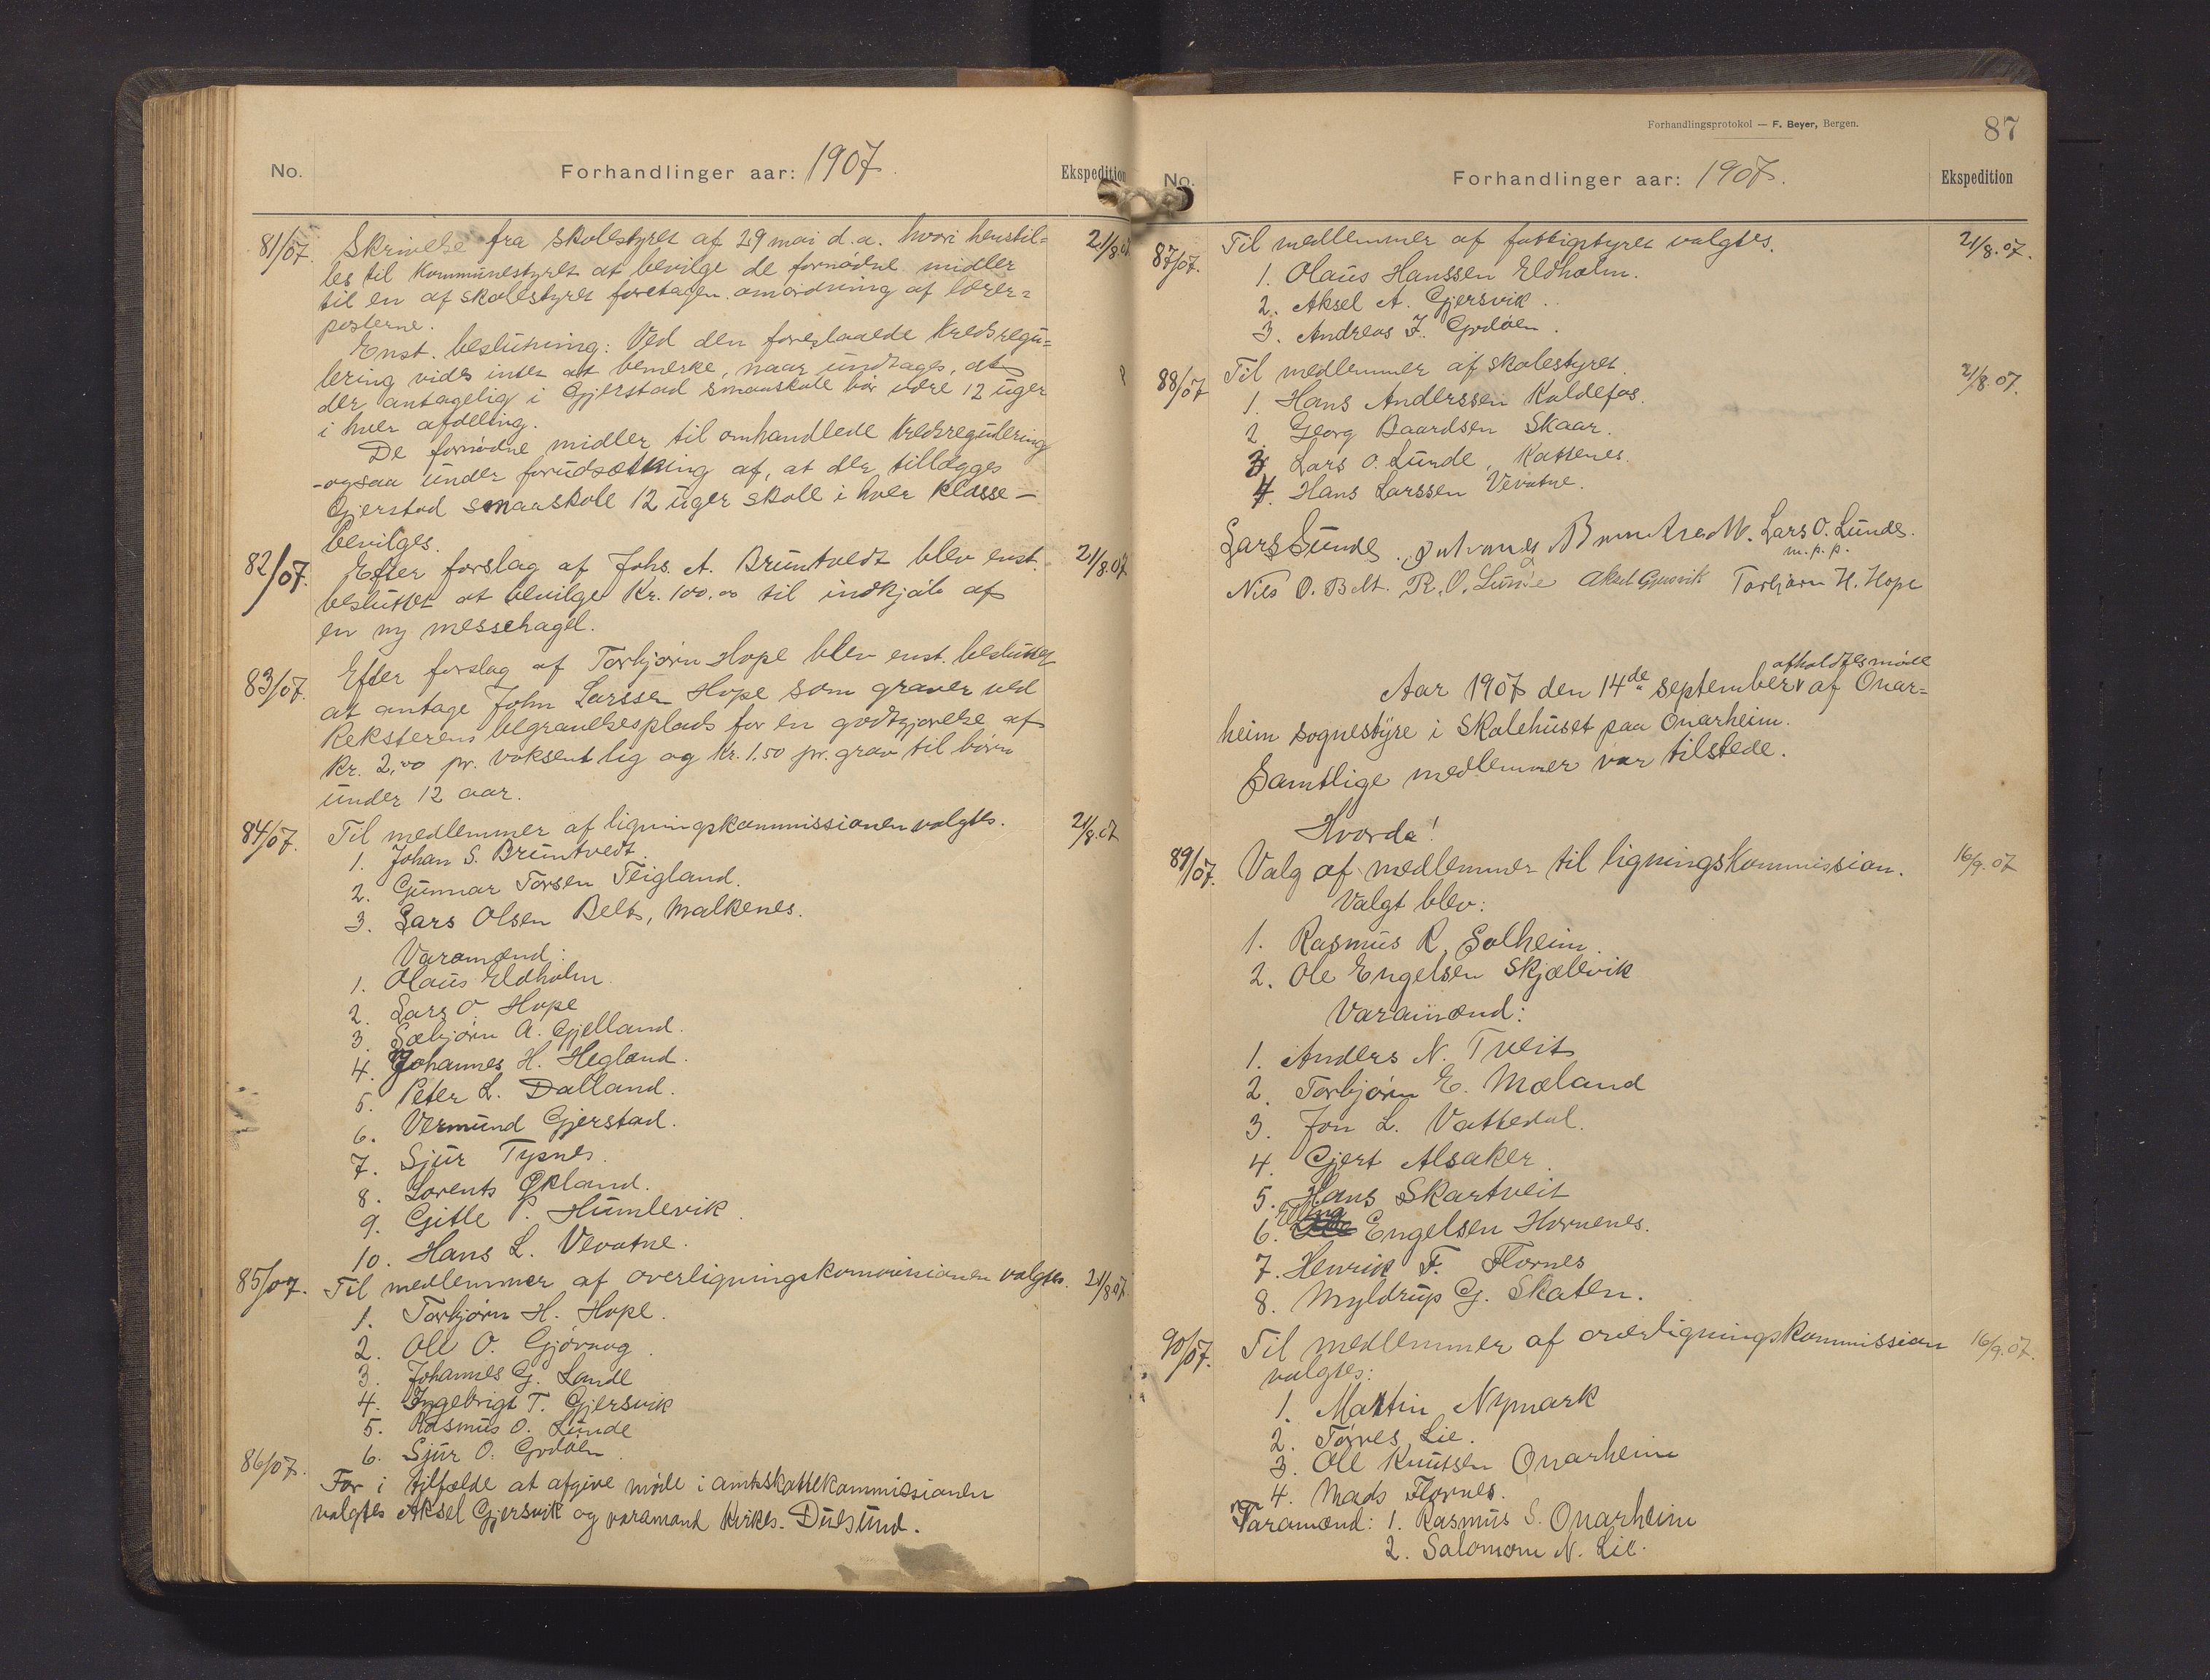 No. Forhandlinger aar: 1907. Ekspedition
81/07. Skrivelse fra skolestyret af 29 mai d.a. hvori henstil= 21/8.07
les til Kommunestyret at bevilge de fornødne midler
til en af skolestyret foretagen omordning af lærer=
posterne.
Enst. beslutning: Ved den foreslaaede Kredsregu=
lering vides intet at bemerke, naar undtages, at
der antagelig i Gjerstad smaaskole bør være 12 uger
i hver afdeling.
De fornødne midler til omhandlede Kredsregulering
-ogsaa under forudsætning af, at der tillægges
Gjerstad smaaskole 12 uger skole i hver Klasse -
bevilges.
82/07. Efter forslag af Johs. A. Bruntvedt blev enst. 21/8.07
besluttet at bevilge Kr. 100.00 til indkjøb af
en ny messehagel.
83/07. Efter forslag af Torbjørn Hope blev enst. besluttet
at antage John Larssen Hope som graver ved
Reksterens begravelsesplads for en godtgjørelse af
Kr. 2,00 pr. voksent lig og Kr. 1.50 pr. grav til børn
under 12 aar.
84/07. Til medlemmer af ligningskommissionen valgtes. 21/8.07
1. Johan S. Bruntvedt.
2. Gunnar Torsen Teigland.
3. Lars Olsen Belt, Malkenes.
Varamænd:
1. Olaus Eldholm
2. Lars O. Hope
3. Sæbjørn A. Gjelland.
4. Johannes H. Hegland.
5. Peter L. Dalland.
6. Vermund Gjerstad.
7. Sjur Tysnes.
8. Lorents Økland.
9. Gitle P. Humlevik.
10. Hans L. Vevatne.
85/07. Til medlemmer af overligningskommissionen valgtes. 21/8 07.
1. Torbjørn H. Hope.
2. Ole O. Gjøvaag.
3. Johannes G. Lande
4. Ingebrigt T. Gjersvik
5. Rasmus O. Lunde
6. Sjur O. Godøen
86/07. For i tilfælde at afgive møde i amtsskattekommissionen
valgtes Aksel Gjersvik og varamand Kirkes. Duesund.
Forhandlingsprotokol — F. Beyer, Bergen.
87
No. Forhandlinger aar: 1907. Ekspedition
87/07. Til medlemmer af fattigstyret valgtes. 21/8.07.
1. Olaus Hanssen Eldholm.
2. Aksel A. Gjersvik.
3. Andreas J. Godøen.
88/07 Til medlemmer af skolestyret. 21/8.07.
1. Hans Anderssen Kaldefos.
2. Georg Baardsen Skaar.
3. Lars O. Lunde, Kattenes.
4. Hans Larssen Vevatne.
Lars Lunde. Johannes Bruntvedt. Lars O. Lunde.
m.p.p.
Nils O. Belt. R. O. Lunde Aksel Gjersvik Torbjørn H. Hope
afholdtes møde
Aar 1907 den 14de september af Onar=
heim sognestyre i Skolehuset paa Onarheim.
Samtlige medlemmer var tilstede.
Hvorda!
89/07. Valg af medlemmer til ligningskommission. 16/9.07
Valgt blev:
1. Rasmus R. Solheim.
2. Ole Engelsen Skjællevik
Varamænd:
1. Anders N. Tveit
2. Torbjørn E. Mæland
3. Jon L. Vattedal.
4. Gjert Alsaker.
5. Hans Skartveit
Elling
6. Engelsen Hornenes.
7. Henrik F. Flornes
8. Myldrup G. Skaten.
90/07. Til medlemmer af overligningskommission 16/9.07.
valgtes:
1. Martin Nymark
2. Tørres Lie.
3. Ole Knutsen Onarheim
4. Mads Flornes.
Varamænd: 1. Rasmus S. Onarheim
2. Salomon N. Lie.